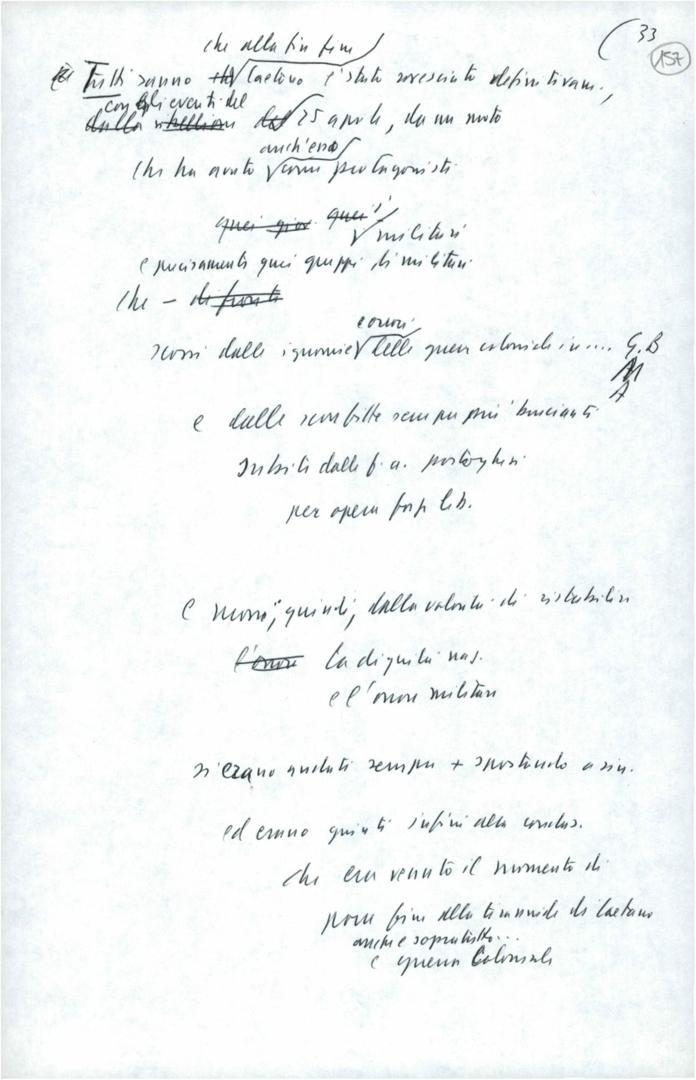 33
157
che alla fin fine
Tutti sanno Caetano è stato rovesciato definitivam.,
con gli eventi del
dalla ribellione del 25 aprile, da un moto
anch'esso
che ha avuto come protagonisti
quei giov quei
militari
e precisamente quei gruppi di militari
che – di fronte
errori
scossi dalle ignominie delle guerre coloniali in.... G.B
M
A
e dalle sconfitte sempre più brucianti
subite dalle f.a. portoghesi
per opera forze lib.
e mossi, quindi, dalla volontà di ristabilire
l'onore la dignità naz.
e l'onore militare
si erano andati sempre + spostando a sin.
ed erano giunti infine alla conclus.
che era venuto il momento di
porre fine alla tirannide di Caetano
anche e soprattutto...
e guerra coloniale